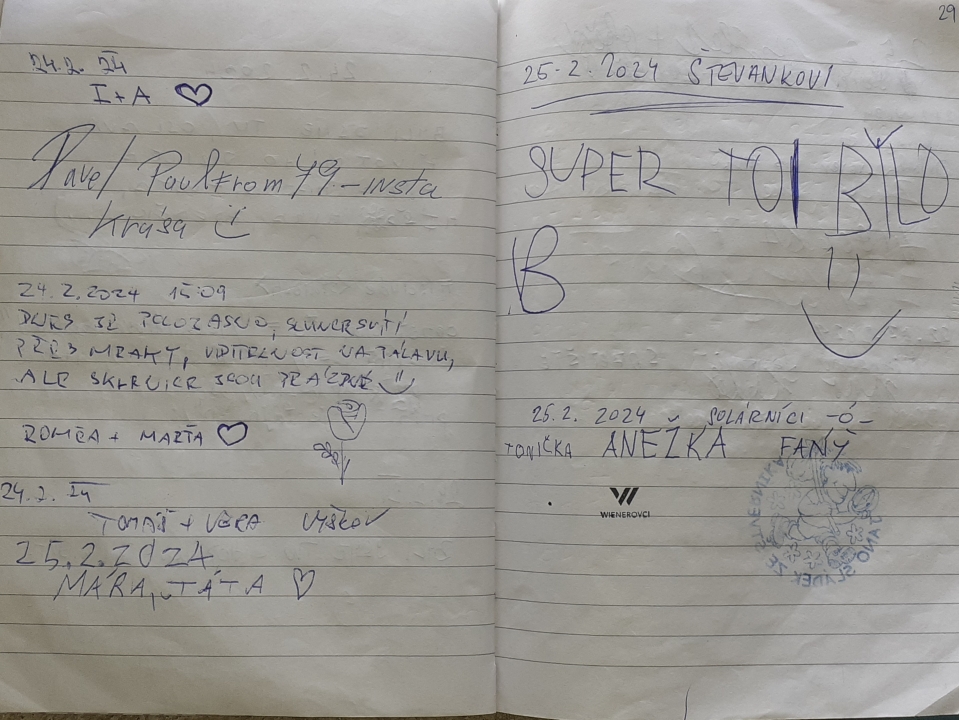 24.2. 24
I + A
Pavel Paulfrom79 - insta
Krása
24.2.2024 15:09
DNES JE POLOJASNO, SLUNCE SVÍTÍ
PŘES MRAKY, VIDITELNOST NA PÁLAVU,
ALE SKLENICE JSOU PRÁZDNÉ
ROMČA + MARŤA
24.2. 24
TOMÁŠ + VĚRA VYŠKOV
25.2.2024
MÁRA, TÁTA
29
25.2.2024 ŠTEVANKOVI
SUPER TO BÝLO
B
25.2. 2024 SOLÁRNÍCI -Ó-
TONIČKA ANEŽKA FANY
WIENEROVCI
SLÁDEK ZE